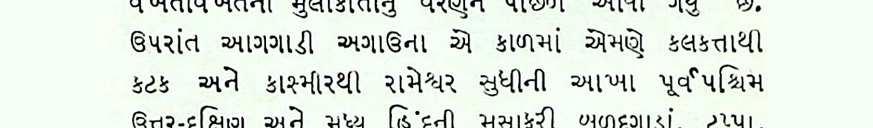 વખતોવખતની મુલાકાતોનું વર્ણન પાછળ આવી ગયું છે.
ઉપરાંત આગગાડી અગાઉના એ કાળમાં એમણે કલકત્તાથી
કટક અને કાશ્મીરથી રામેશ્વર સુધીની આખા પૂર્વપશ્ચિમ
ઉત્તર-દક્ષિણ અને મધ્ય હિંદની મુસાફરી બળદગાડાં, ટપ્પા,